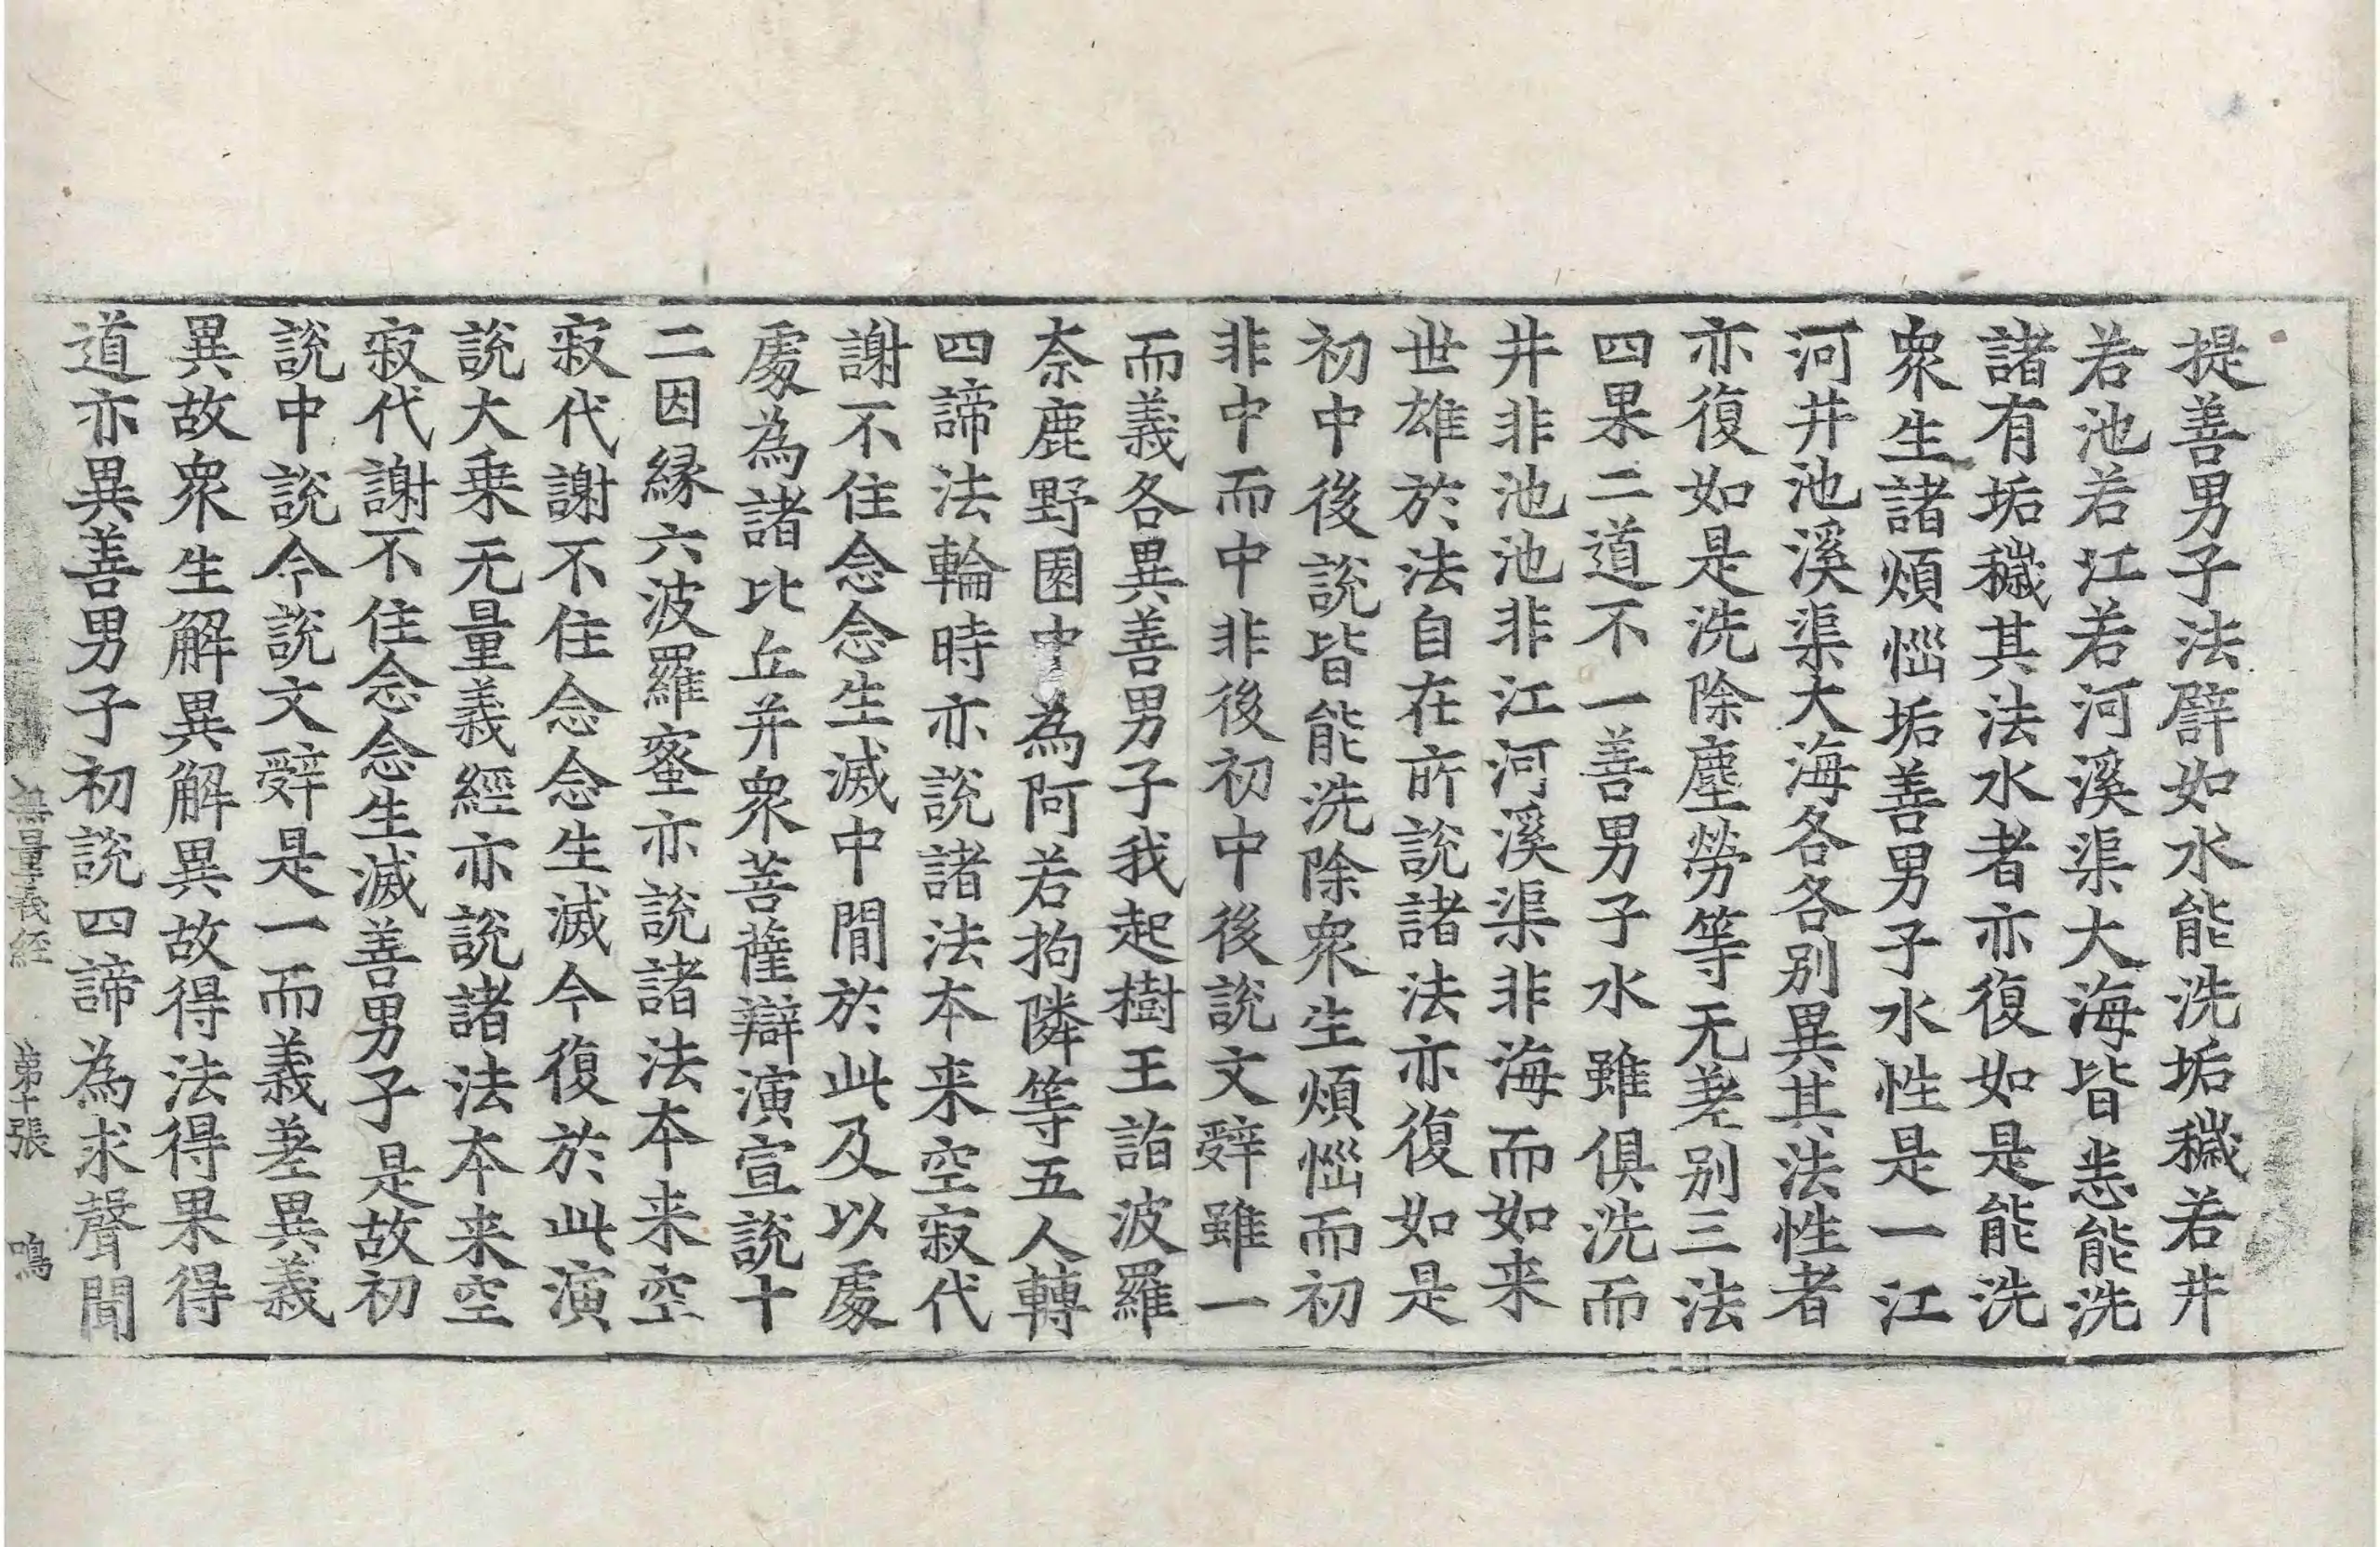 提善男子法譬如水能洗垢穢若井
若池若江若河溪渠大海皆悉能洗
諸有垢穢其法水者亦復如是能洗
衆生諸煩惱垢善男子水性是一江
河井池溪渠大海各各别異其法性者
亦復如是洗除塵勞等无差别三法
四果二道不一善男子水雖俱洗而
井非池池非江河溪渠非海而如来
世雄於法自在所說諸法亦復如是
初中後說皆能洗除衆生煩惱而初
非中而中非後初中後說文辝雖一
而義各異善男子我起樹王詣波羅
奈鹿野園中為阿若拘隣等五人轉
四諦法輪時亦說諸法本来空寂代
謝不住念念生滅中間於此及以處
處為諸比丘并衆菩薩辯演宣說十
二因縁六波羅蜜亦說諸法本来空
寂代謝不住念念生滅今復於此演
說大乗无量義經亦說諸法本来空
寂代謝不住念念生滅善男子是故初
說中說今說文辝是一而義差異義
異故衆生解異解異故得法得果得
道亦異善男子初說四諦為求聲聞
無量義経 第十張 鳴